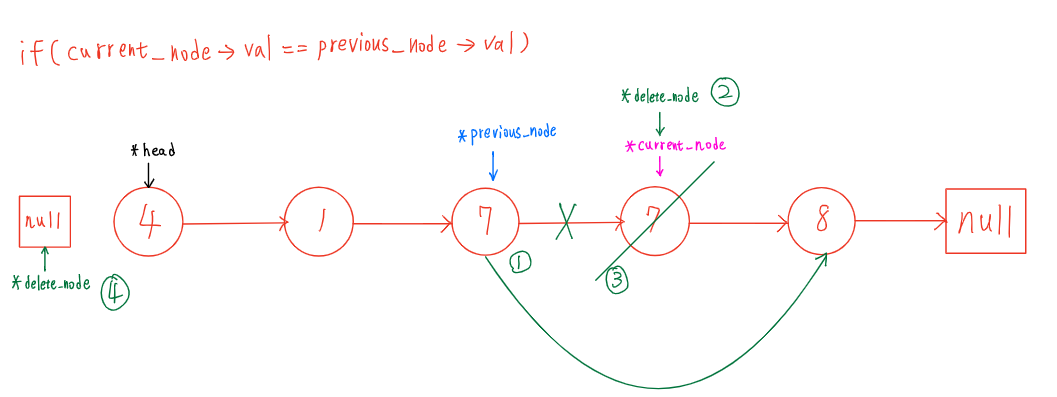 if(current_node→val == previous_node→val)
*delete_node ②
*previous_node
*current_node
*head
null 4 1 7 7 8 null
①
③
*delete_node ④